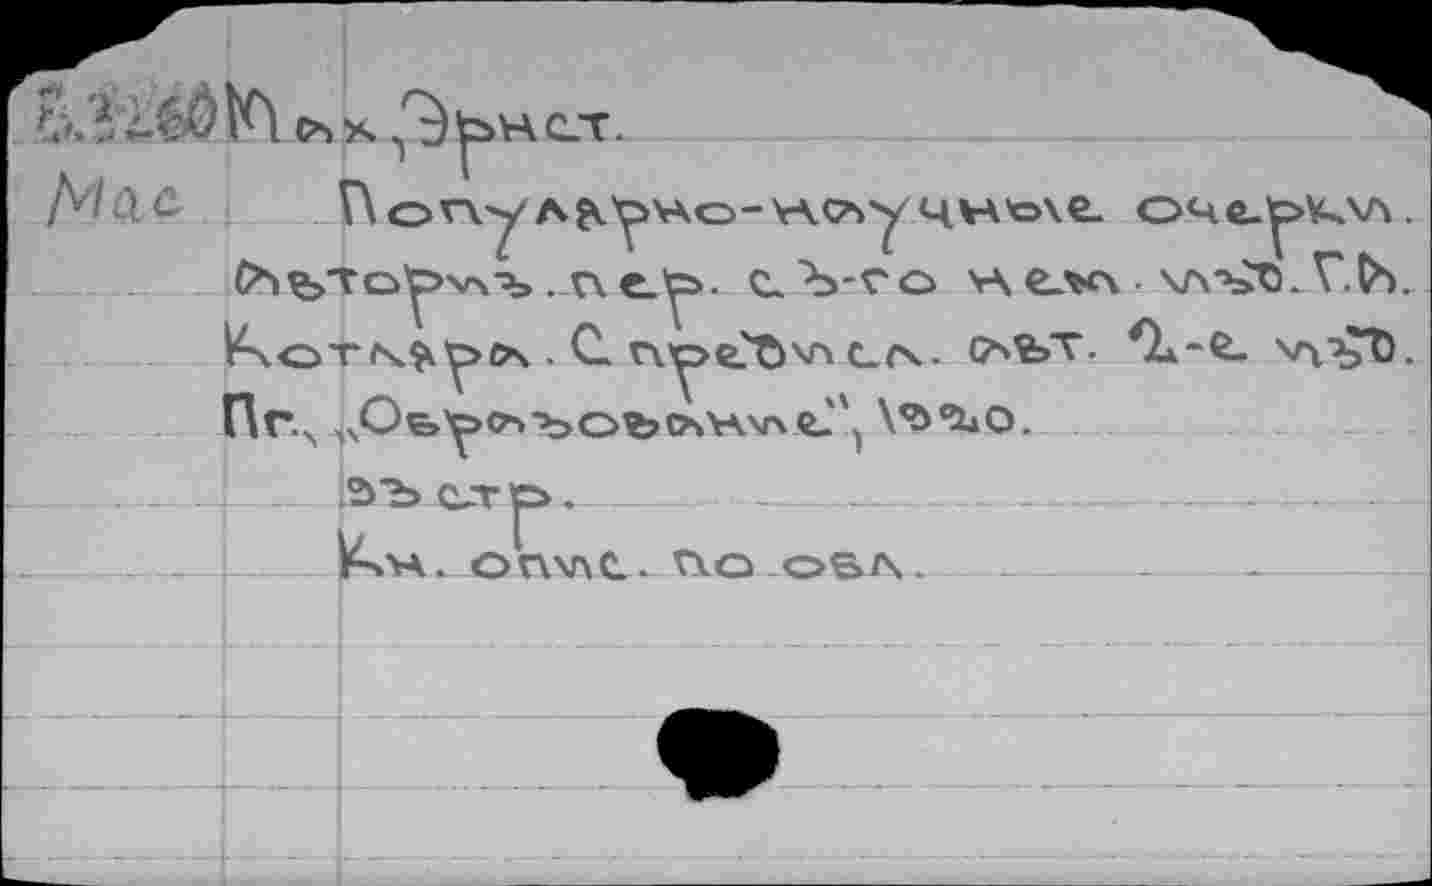 Мах, Эрнст.
Мас
Популярно-научные очерки.
Авториз. пер. с 3-го нем. изд. Г.А.
Котляра. С предисл. авт. 2-е изд.
Пг., „Образование", 1920.
93 стр.
Кн. опис. по обл.